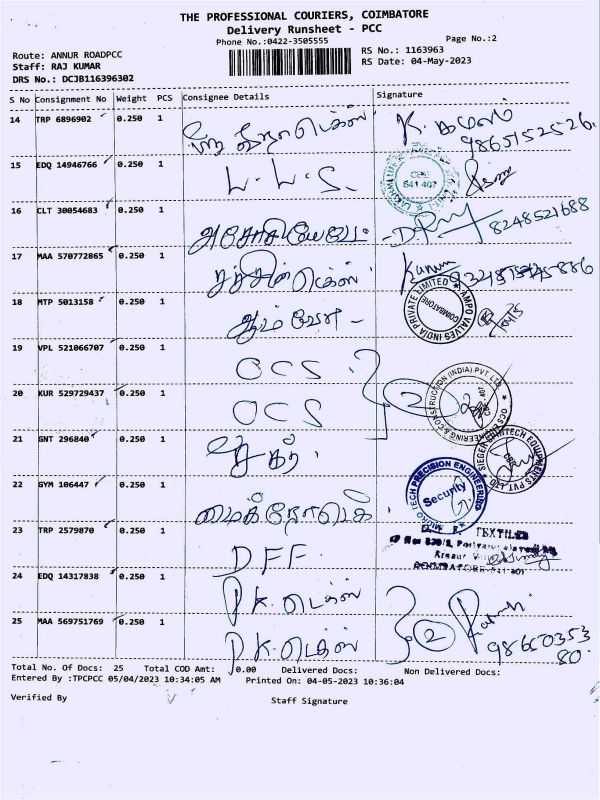 THE PROFESSIONAL COURIERS, COIMBATORE
Delivery Runsheet - PCC
Phone No.:0422-3505555
Page No.:2
Route: ANNUR ROADPCC
RS No.: 1163963
Staff: RAJ KUMAR
RS Date: 04-May-2023
DRS No.: DCJB116396302
S No Consignment No Weight PCS Consignee Details Signature
14 TRP 6896902 0.250 1 K. கமலம்
9865152526.
15 EDQ 14946766 0.250 1 L.L.S. CBE 641 407
16 CLT 30054683 0.250 1 8248521688
17 MAA 570772865 0.250 1
18 MTP 5013158 0.250 1 AMPO VALVES INDIA PRIVATE LIMITED COIMBATORE
19 VPL 521066707 0.250 1 OCS
20 KUR 529729437 0.250 1 OCS 2 OCS ENGINEERING & CONSTRUCTION (INDIA) PVT LTD. CBE - 407
21 GNT 296840 0.250 1 SIEGER SPINTECH EQUIPMENTS PVT. LTD CBE
22 GYM 106447 0.250 1 MICRO TECH PRECISION ENGINEERING Security
23 TRP 2579870 0.250 1 DFF TEXTILES
24 EDQ 14317838 0.250 1 P.K. டெக்ஸ்
25 MAA 569751769 0.250 1 P.K. டெக்ஸ் 2
9865035380.
Total No. Of Docs: 25 Total COD Amt: 0.00 Delivered Docs: Non Delivered Docs:
Entered By :TPCPCC 05/04/2023 10:34:05 AM Printed On: 04-05-2023 10:36:04
Verified By
Staff Signature